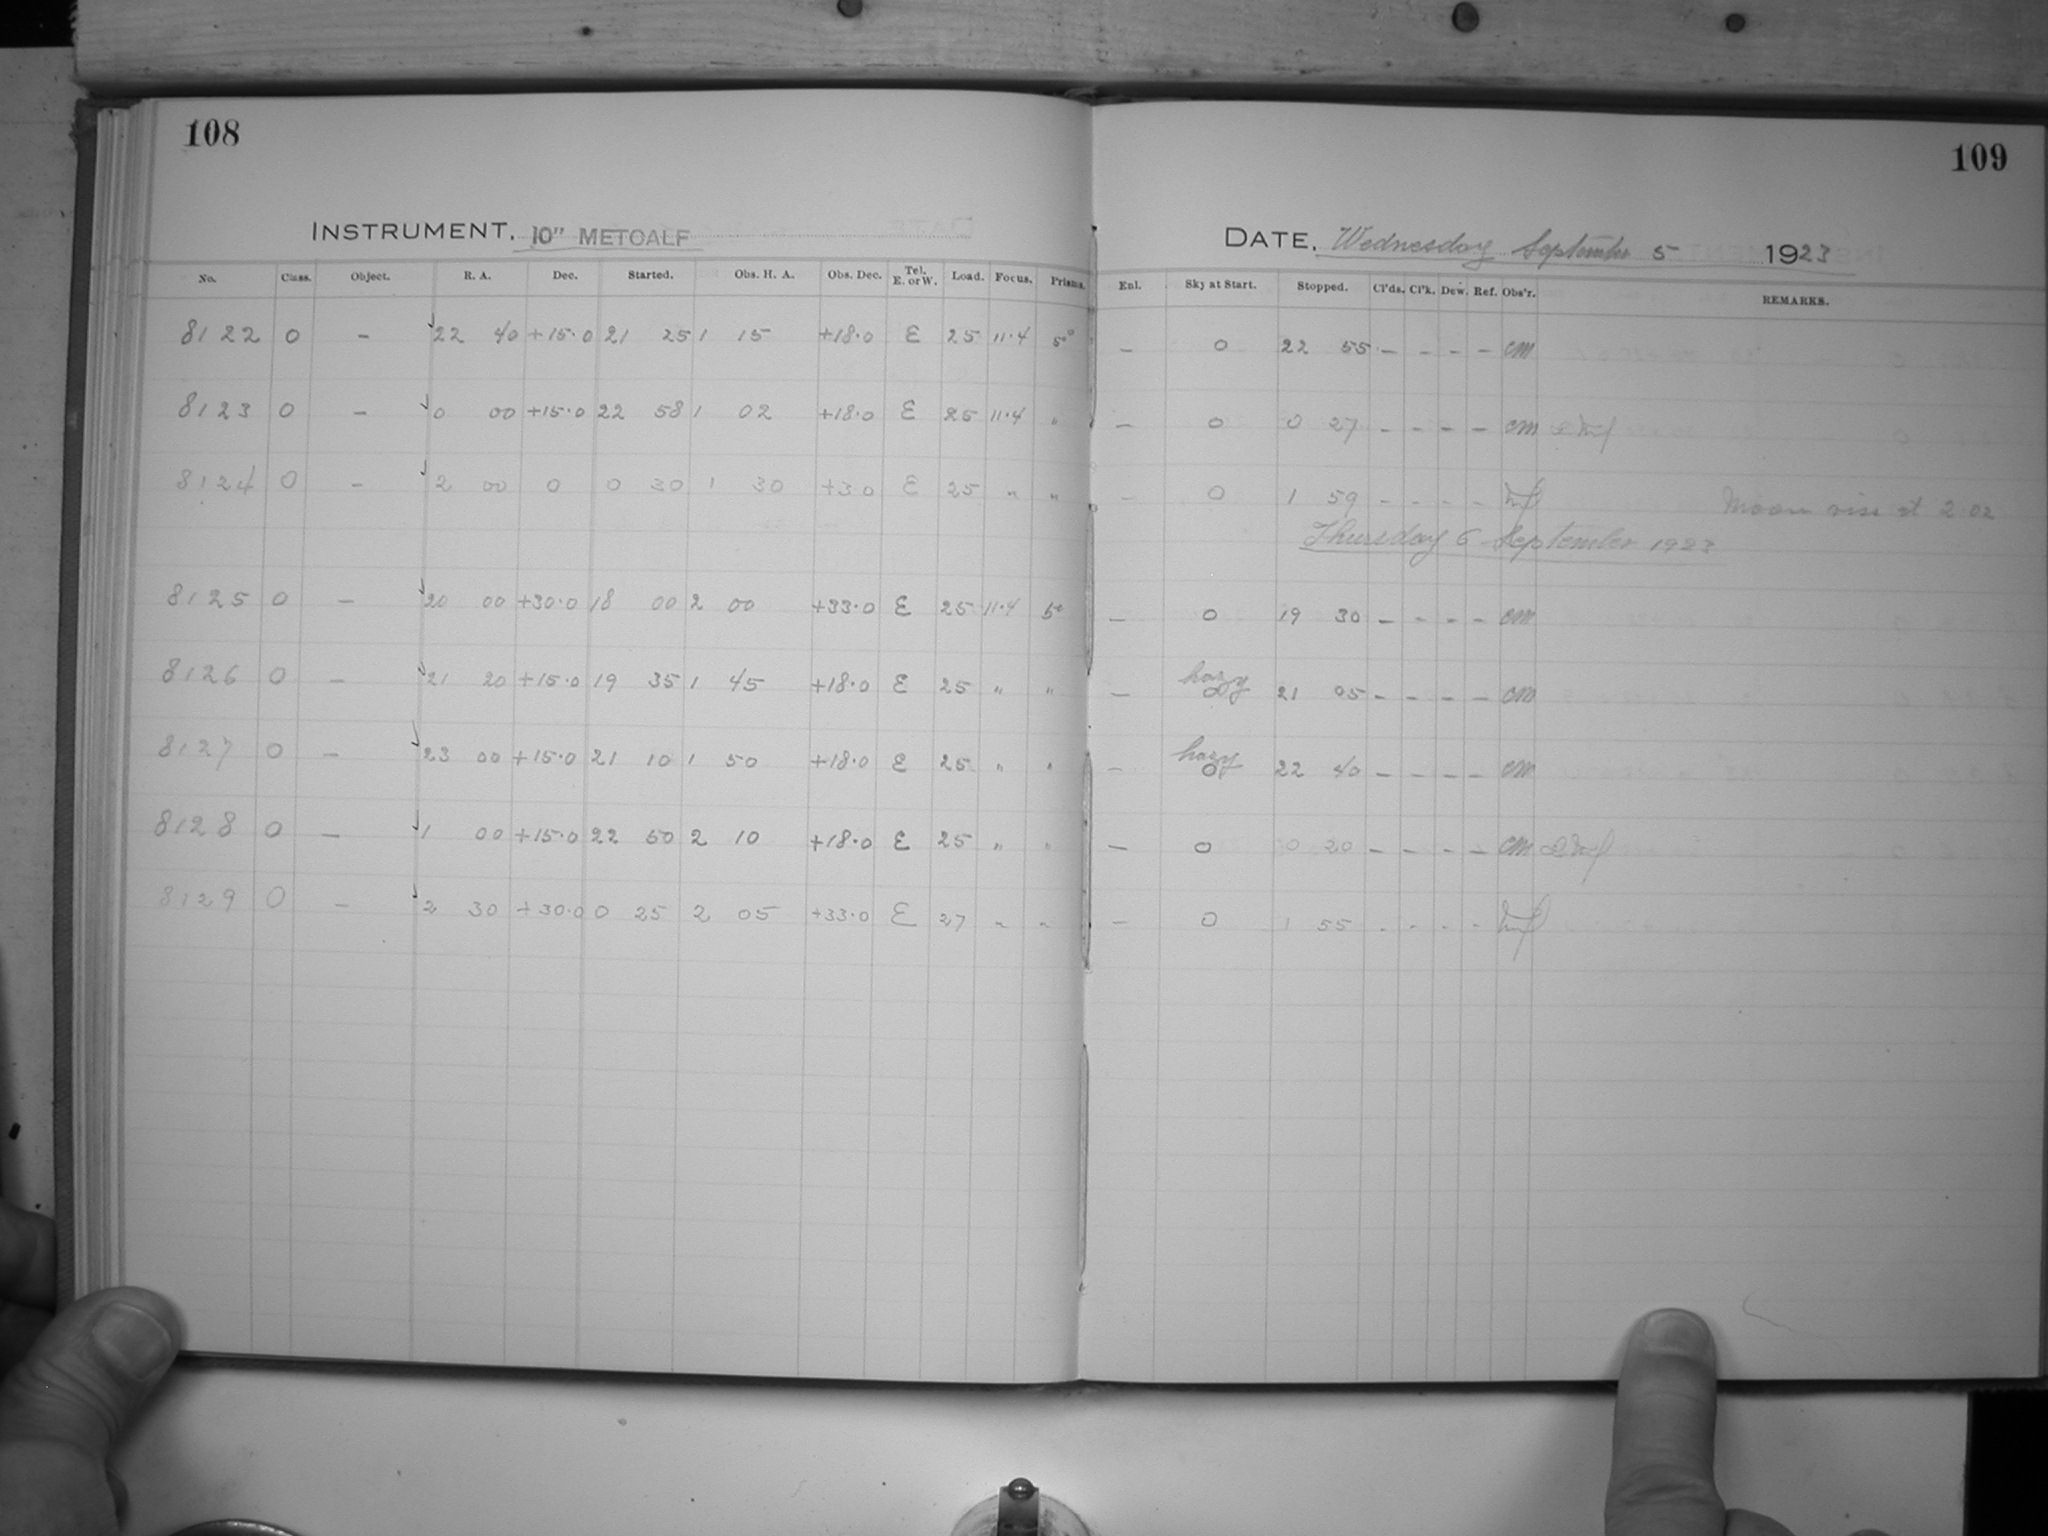 108
INSTRUMENT. 10" METCALF
No. Class. Object. R. A. Dec. Started. Obs. H. A. Obs. Dec. Tel. E. or W. Load. Focus. Prisms.
8122 0 – 22 40 +15.0 21 25 1 15 +18.0 E 25 11.4 5°
8123 0 – 0 00 +15.0 22 58 1 02 +18.0 E 25 11.4 "
8124 0 – 2 00 0 0 30 1 30 +3.0 E 25 " "
8125 0 – 20 00 +30.0 18 00 2 00 +33.0 E 25 11.4 5°
8126 0 – 21 20 +15.0 19 35 1 45 +18.0 E 25 " "
8127 0 – 23 00 +15.0 21 10 1 50 +18.0 E 25 " "
8128 0 – 1 00 +15.0 22 50 2 10 +18.0 E 25 " "
8129 0 – 2 30 +30.0 0 25 2 05 +33.0 E 27 " "
109
DATE. Wednesday September 5 1923
Enl. Sky at Start. Stopped. Cl'ds. Cl'k. Dew. Ref. Obs'r. REMARKS.
– 0 22 55 – – – – CM
– 0 0 27 – – – – CM
– 0 1 59 – – – – Moon rise at 2 02
Thursday 6 September 1923
– 0 19 30 – – – – CM
– hazy 0 21 05 – – – – CM
– hazy 0 22 40 – – – – CM
– 0 0 20 – – – – CM
– 0 1 55 – – – –